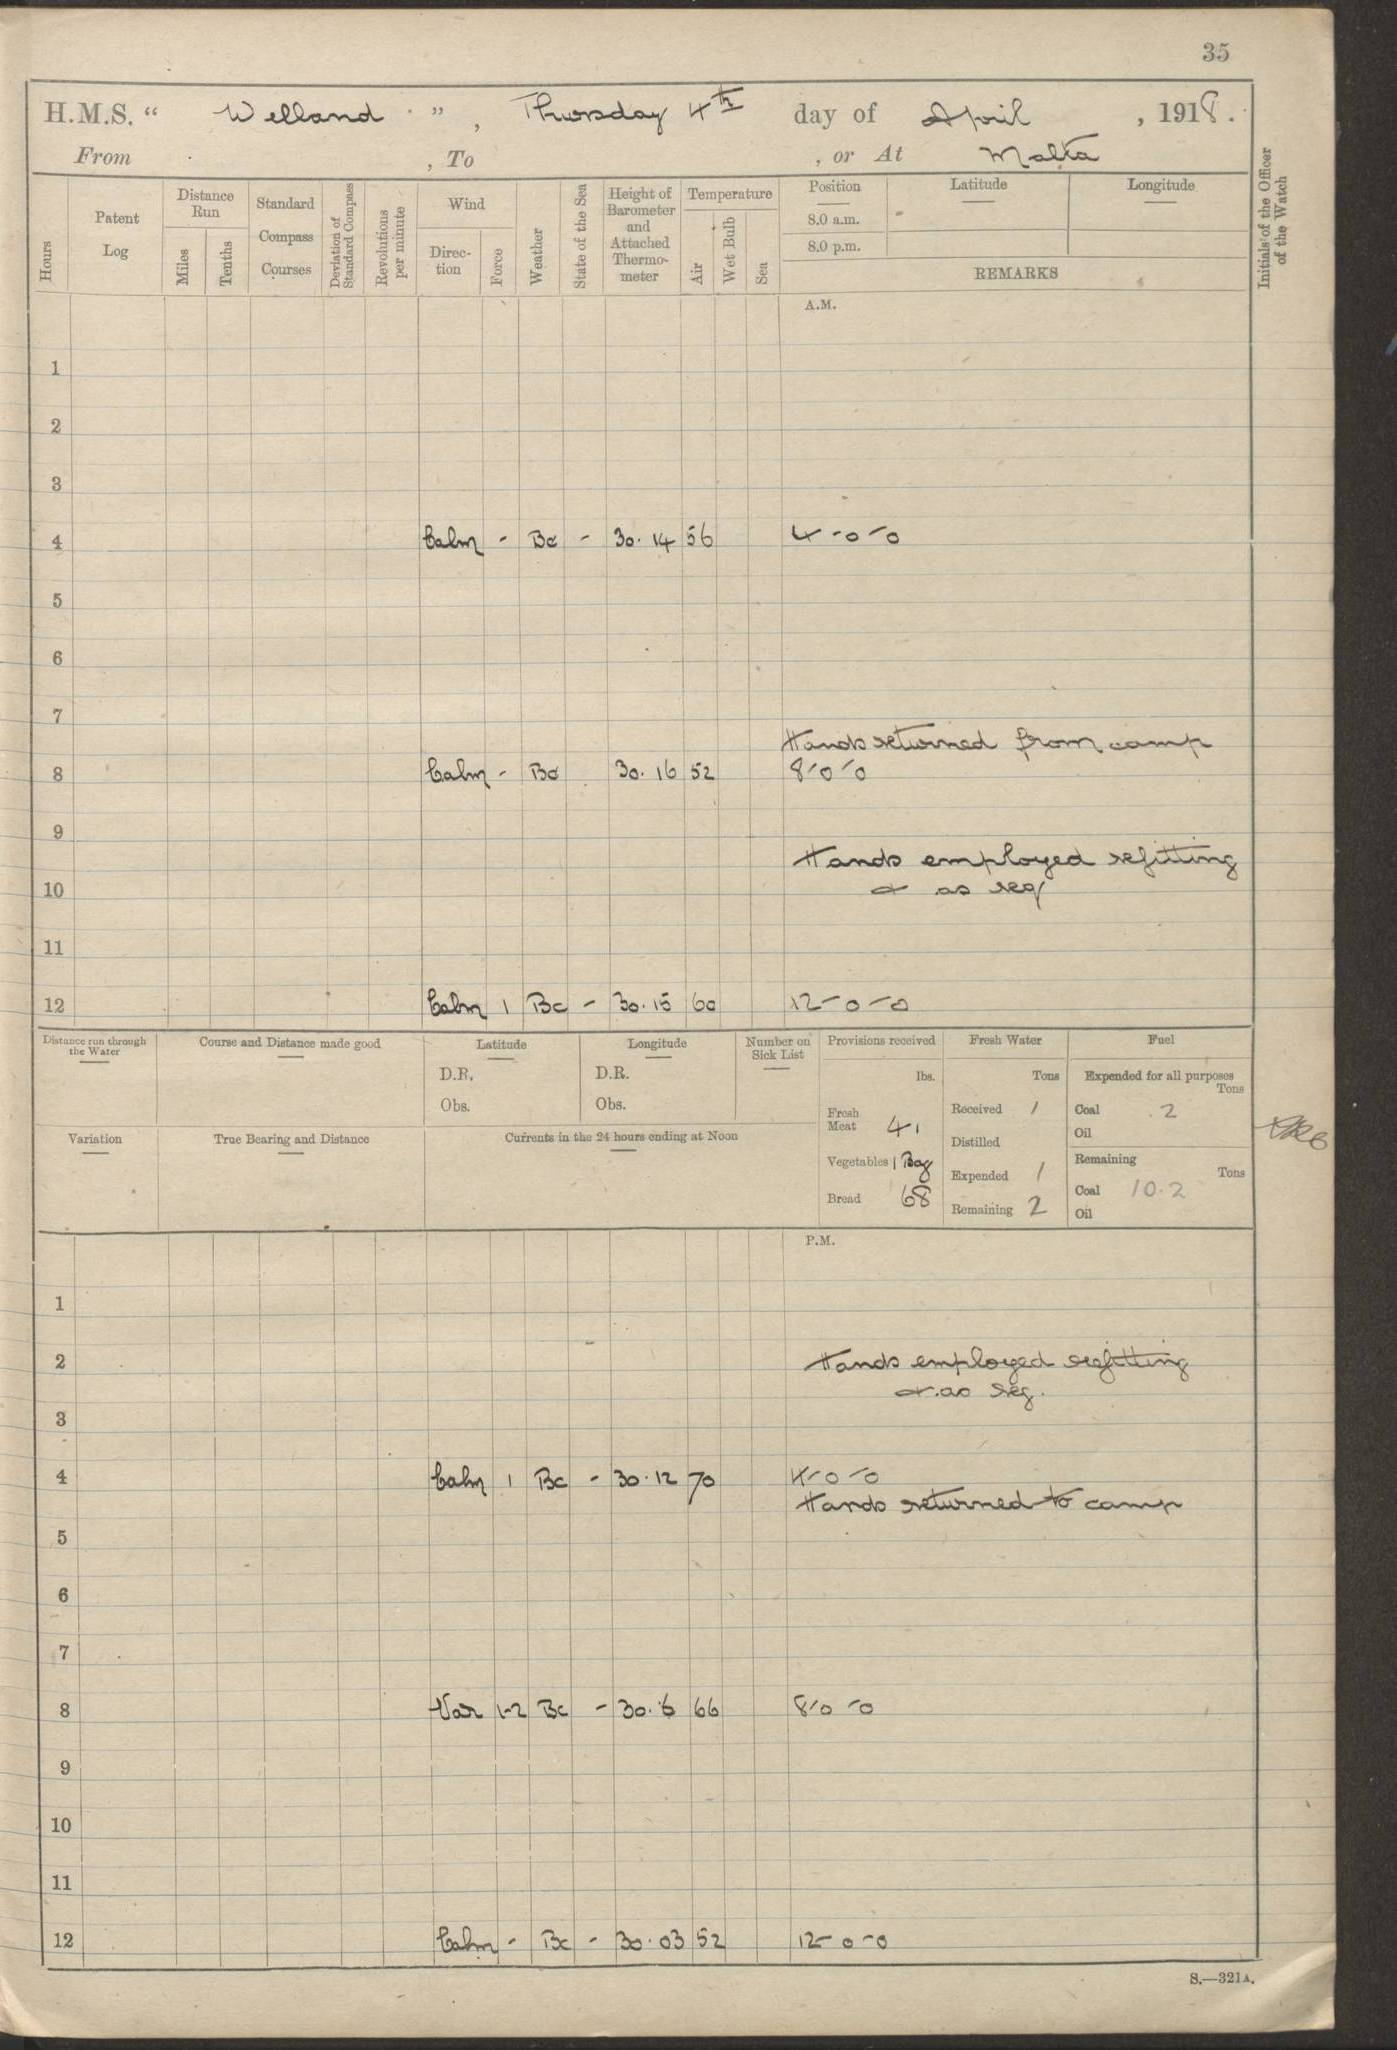 35
H.M.S. "Welland", Thursday 4th day of April, 1918.
From , To , or At Malta
Hours
Patent Log
Distance Run
Miles
Tenths
Standard Compass Courses
Deviation of Standard Compass
Revolutions per minute
Wind
Direction
Force
Weather
State of the Sea
Height of Barometer and Attached Thermometer
Temperature
Air
Wet Bulb
Sea
Position
8.0 a.m.
8.0 p.m.
Latitude
Longitude
REMARKS
Initials of the Officer of the Watch
A.M.
1
2
3
4 Calm - Bc - 30.14 56 4-0-0
5
6
7
Hands returned from camp
8 Calm - Bc 30.16 52 8-0-0
9
Hands employed refitting
10 & as req
11
12 Calm 1 Bc - 30.15 60 12-0-0
Distance run through the Water
Course and Distance made good
Latitude
D.R.
Obs.
Longitude
D.R.
Obs.
Number on Sick List
Variation
True Bearing and Distance
Currents in the 24 hours ending at Noon
Provisions received
lbs.
Fresh Meat 41
Vegetables 1 Bag
Bread 68
Fresh Water
Tons
Received 1
Distilled
Expended 1
Remaining 2
Fuel
Expended for all purposes
Tons
Coal .2
Oil
Remaining
Tons
Coal 10.2
Oil
P.M.
1
2 Hands employed refitting
& as req.
3
4 Calm 1 Bc - 30.12 70 4-0-0
Hands returned to camp
5
6
7
8 Var 1-2 Bc - 30.6 66 8-0-0
9
10
11
12 Calm - Bc - 30.03 52 12-0-0
S.—321A.